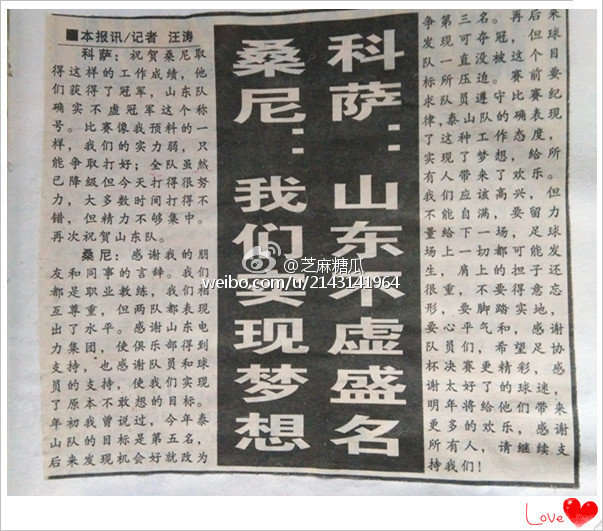 ■本报讯/记者 汪涛
科萨：祝贺桑尼取
得这样的工作成绩，他
们获得了冠军，山东队
确实不虚冠军这个称
号。比赛像我预料的一
样，我们的实力弱，只
能争取打好；全队虽然
已降级但今天打得很努
力，大多数时间打得不
错，但精力不够集中。
再次祝贺山东队。
桑尼：感谢我的朋
友和同事的言辞。我们
都是职业教练，我们相
互尊重，但两队都表现
出了水平。感谢山东电
力集团，使俱乐部得到
支持，也感谢队员和球
员的支持，使我们实现
了原本不敢想的目标。
年初我曾说过，今年泰
山队的目标是第五名，
后来发现机会好就改为
科萨：山东不虚盛名
桑尼：我们实现梦想
争第三名。再后来
发现可夺冠，但球
队一直没被这个目
标所压迫。赛前要
求队员遵守比赛纪
律，泰山队的确表现
了这种工作态度，
实现了梦想，给所
有人带来了欢乐。
我们应该高兴，但
不能自满，要留力
量给下一场，足球
场上一切都可能发
生，肩上的担子还
很重，不要得意忘
形，要脚踏实地，
要心平气和，感谢
队员们，希望足协
杯决赛更精彩，感
谢太好了的球迷，
明年将给他们带来
更多的欢乐，感谢
所有人，请继续支
持我们！
@芝麻糖瓜
weibo.com/u/2143141964
Love